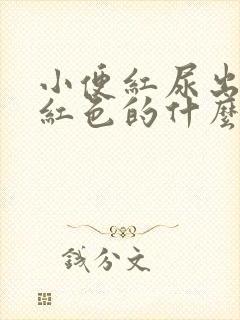 小便紅尿出
紅色的什麼
錢分文